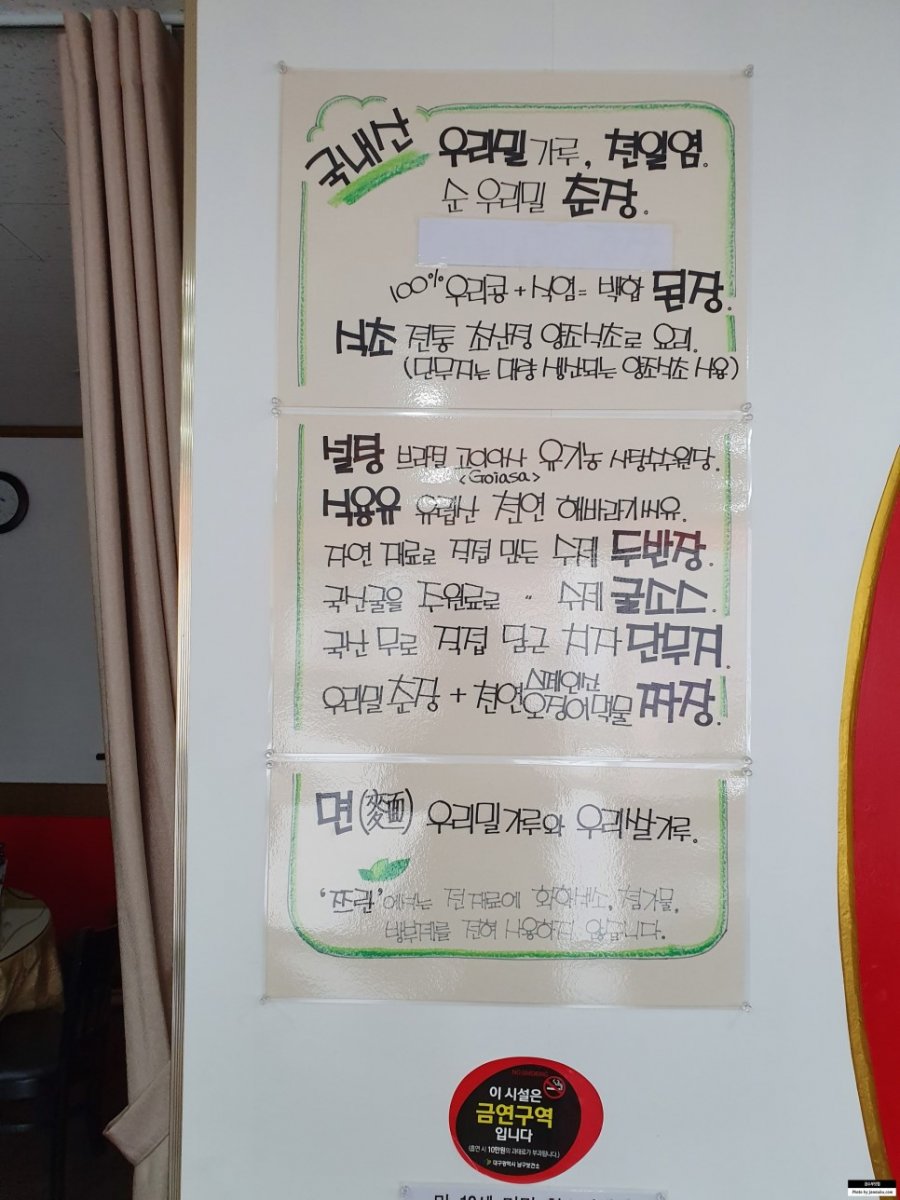 국내산 우리밀 가루, 천일염.
순 우리밀 춘장.
100% 우리콩 + 식염 = 백합 된장.
식초 전통 초산정 양조식초로 요리.
(단무지는 대량 생산되는 양조식초 사용)
설탕 브라질 고이아사 유기농 사탕수수원당.
<Goiasa>
식용유 유럽산 천연 해바라기씨유.
자연 재료로 직접 만든 수제 두반장.
국산굴을 주원료로 〃 수제 굴소스.
국산 무로 직접 담근 치자 단무지.
스페인산
우리밀 춘장 + 천연 오징어먹물 짜장.
면(麵) 우리밀가루와 우리쌀가루.
'쯔란'에서는 전 재료에 화학색소, 첨가물,
방부제를 전혀 사용하지 않습니다.
NO SMOKING
이 시설은
금연구역
입니다
(흡연 시 10만원의 과태료가 부과됩니다.)
대구광역시 남구보건소